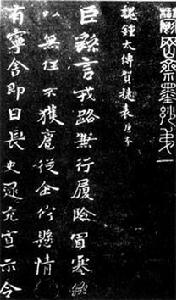 鬱岡齋墨妙弟一
魏鍾太傅賀捷表
臣繇言戎路兼行履險冒寒臣
以無任不獲扈從企佇懸情
有寧舍即日長史逯充宣示令